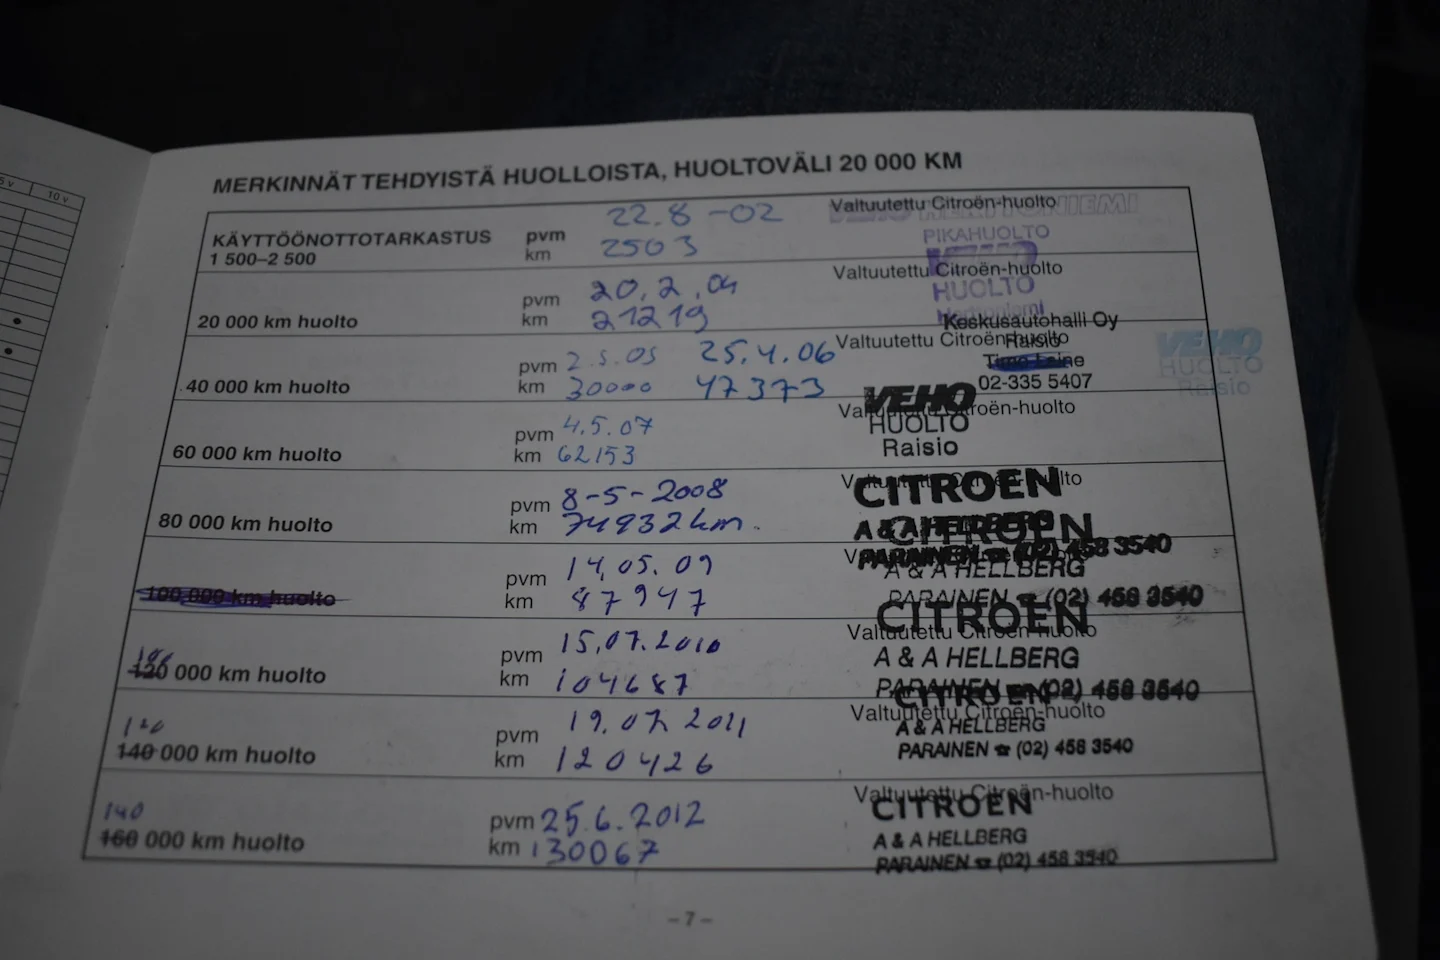 5 v 10 v
MERKINNÄT TEHDYISTÄ HUOLLOISTA, HUOLTOVÄLI 20 000 KM
KÄYTTÖÖNOTTOTARKASTUS pvm 22.8 -02 Valtuutettu Citroën-huolto
1 500–2 500 km 2503 VEHO HERTTONIEMI
PIKAHUOLTO
VEHO
pvm 20.2.04 Valtuutettu Citroën-huolto
20 000 km huolto km 21219 HUOLTO
Herttoniemi
Keskusautohalli Oy
pvm 2.5.05 25.4.06 Valtuutettu Citroën-huolto
Raisio
VEHO
40 000 km huolto km 30000 47373 02-335 5407
HUOLTO
Raisio
VEHO
pvm 4.5.07 Valtuutettu Citroën-huolto
HUOLTO
60 000 km huolto km 62153 Raisio
pvm 8-5-2008 Valtuutettu Citroën-huolto
CITROEN
80 000 km huolto km 74932 km. A & A HELLBERG
CITROEN
PARAINEN ☎ (02) 458 3540
pvm 14.05.09 Valtuutettu Citroën-huolto
A & A HELLBERG
100 000 km huolto km 87947 PARAINEN ☎ (02) 458 3540
CITROEN
pvm 15.07.2010 Valtuutettu Citroën-huolto
100
120 000 km huolto km 104687 A & A HELLBERG
PARAINEN ☎ (02) 458 3540
CITROEN
pvm 19.07 2011 Valtuutettu Citroën-huolto
120
140 000 km huolto km 120426 A & A HELLBERG
PARAINEN ☎ (02) 458 3540
pvm 25.6.2012 Valtuutettu Citroën-huolto
140 CITROEN
160 000 km huolto km 130067 A & A HELLBERG
PARAINEN ☎ (02) 458 3540
– 7 –